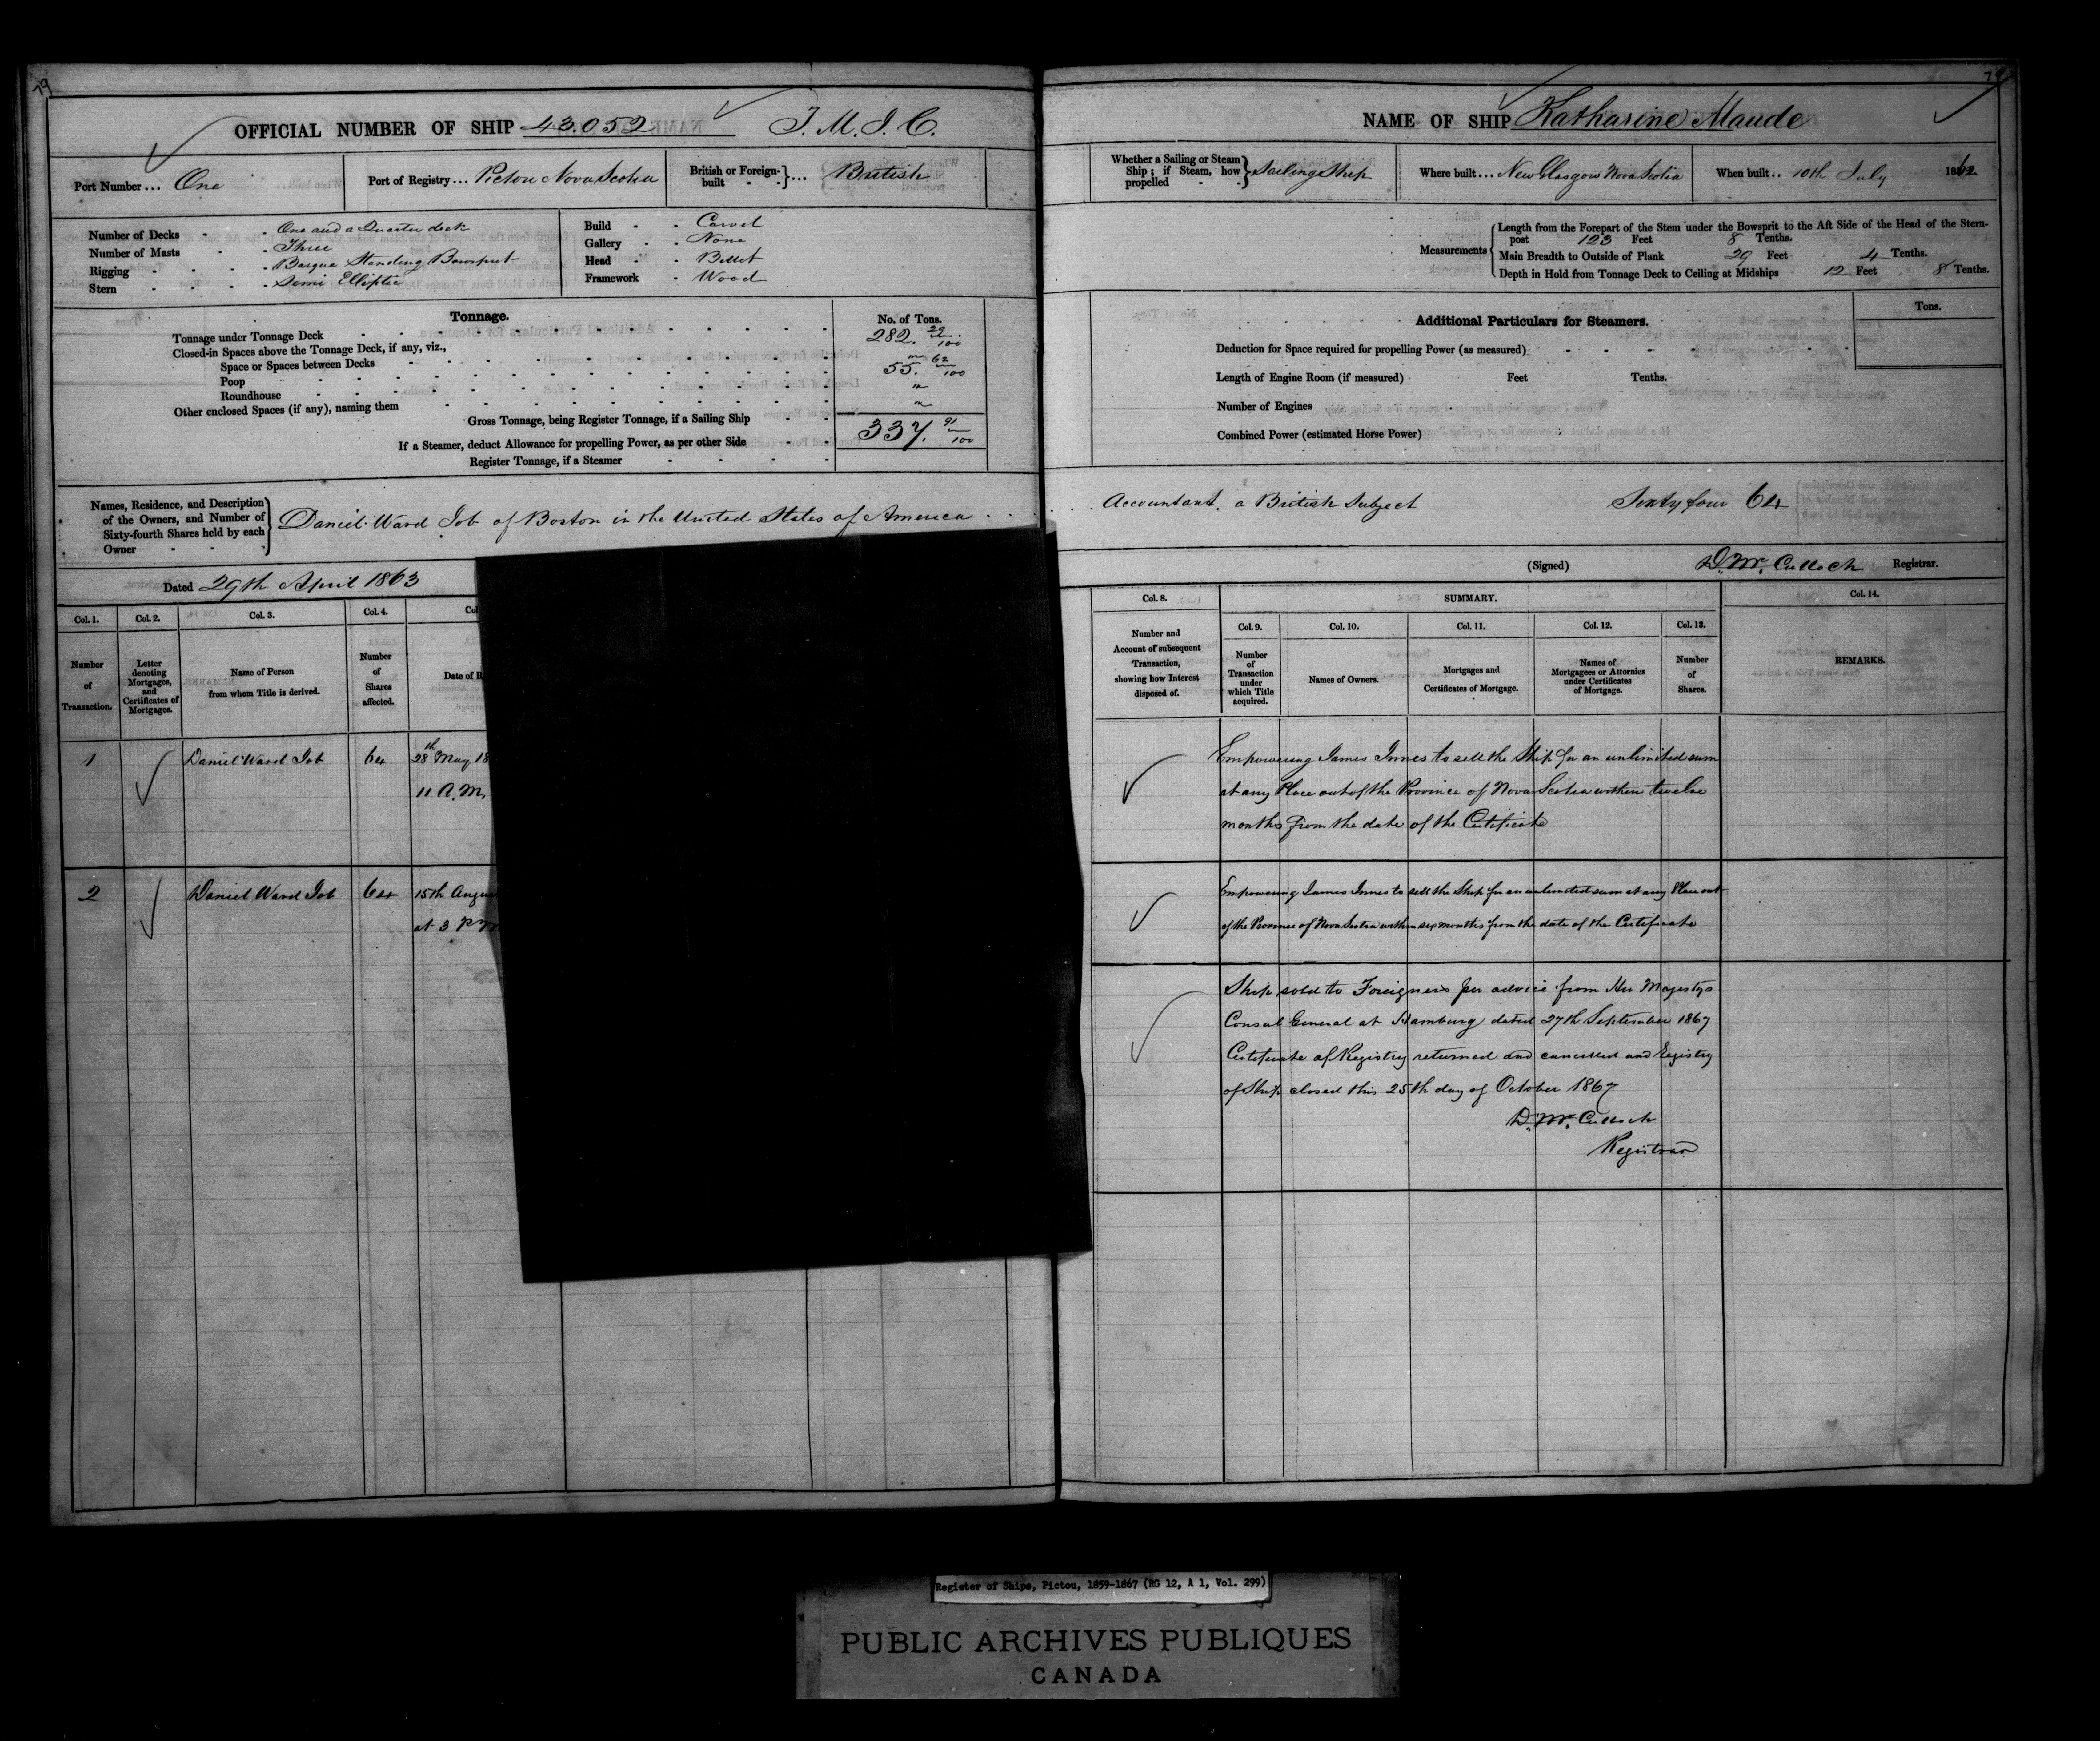 79
OFFICIAL NUMBER OF SHIP 43.052 T. M. J. C.
Port Number... One
Port of Registry... Pictou Nova Scotia
British or Foreign-built - -}... British
Number of Decks - - One and a Quarter deck
Number of Masts - - Three
Rigging - - - - Barque Standing Bowsprit
Stern - - - - Semi Elliptic
Build - - Carvel
Gallery - - None
Head - - Billet
Framework - Wood
Tonnage.
No. of Tons.
Tonnage under Tonnage Deck 282. 29/100
Closed-in Spaces above the Tonnage Deck, if any, viz.,
Space or Spaces between Decks
Poop 55. 62/100
Roundhouse
Other enclosed Spaces (if any), naming them
Gross Tonnage, being Register Tonnage, if a Sailing Ship 337. 91/100
If a Steamer, deduct Allowance for propelling Power, as per other Side
Register Tonnage, if a Steamer
Names, Residence, and Description
of the Owners, and Number of
Sixty-fourth Shares held by each
Owner
Daniel Ward Job of Boston in the United States of America
Dated 29th April 1863
Col. 1. Col. 2. Col. 3. Col. 4. Col
Number of Transaction.
Letter denoting Mortgages, and Certificates of Mortgages.
Name of Person from whom Title is derived.
Number of Shares affected.
Date of R
1 Daniel Ward Job 64 28th May 18
11 A.M.
2 Daniel Ward Job 64 15th Augu
at 3 P M
79
NAME OF SHIP Katharine Maude
Whether a Sailing or Steam Ship; if Steam, how propelled - -} Sailing Ship
Where built... New Glasgow Nova Scotia
When built.. 10th July 1862
Measurements
Length from the Forepart of the Stem under the Bowsprit to the Aft Side of the Head of the Stern-
post 123 Feet 8 Tenths.
Main Breadth to Outside of Plank 29 Feet 4 Tenths.
Depth in Hold from Tonnage Deck to Ceiling at Midships 12 Feet 8 Tenths.
Tons.
Additional Particulars for Steamers.
Deduction for Space required for propelling Power (as measured)
Length of Engine Room (if measured) Feet Tenths.
Number of Engines
Combined Power (estimated Horse Power)
Accountant, a British Subject Sixty four 64
(Signed) D. McCulloch Registrar.
Col. 8. SUMMARY. Col. 14.
Col. 9. Col. 10. Col. 11. Col. 12. Col. 13.
Number and Account of subsequent Transaction, showing how Interest disposed of.
Number of Transaction under which Title acquired.
Names of Owners.
Mortgages and Certificates of Mortgage.
Names of Mortgagees or Attornies under Certificates of Mortgage.
Number of Shares.
REMARKS.
Empowering James Innes to sell the Ship for an unlimited sum
at any Place out of the Province of Nova Scotia within twelve
months from the date of the Certificate
Empowering James Innes to sell the Ship for an unlimited sum at any Place out
of the Province of Nova Scotia within six months from the date of the Certificate
Ship sold to Foreigners per advice from Her Majestys
Consul General at Hamburg dated 27th September 1867
Certificate of Registry returned and cancelled and Registry
of Ship closed this 25th day of October 1867
D. McCulloch
Registrar
Register of Ships, Pictou, 1859-1867 (RG 12, A 1, Vol. 299)
PUBLIC ARCHIVES PUBLIQUES
CANADA